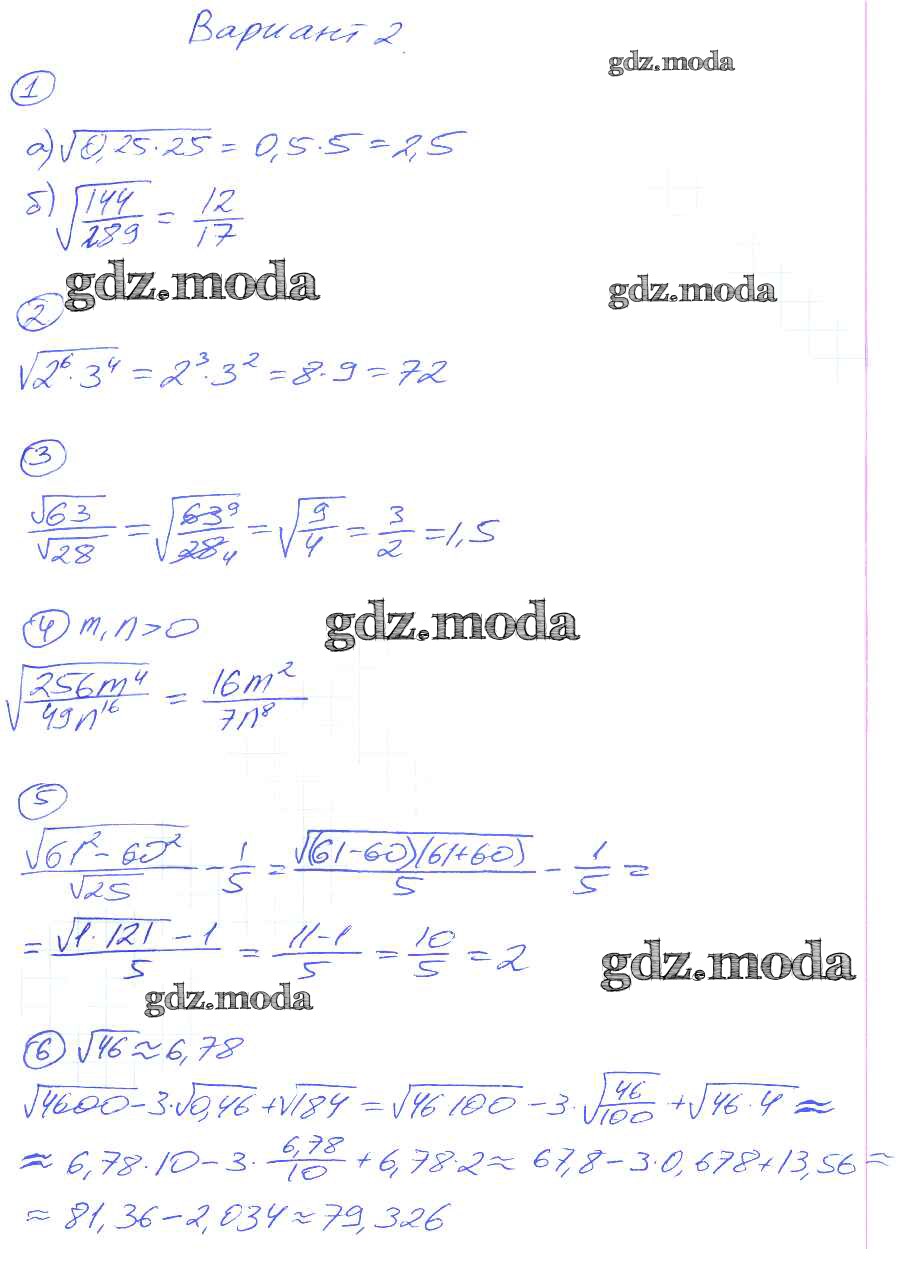 Вариант 2.
gdz.moda
1
а) √(0,25·25) = 0,5·5 = 2,5
б) √(144/289) = 12/17
gdz.moda
gdz.moda
2
√(2⁶·3⁴) = 2³·3² = 8·9 = 72
3
√63/√28 = √(63 9/28 4) = √(9/4) = 3/2 = 1,5
gdz.moda
4 m, n > 0
√(256m⁴/49n¹⁶) = 16m²/7n⁸
5
√(61² – 60²)/√25 – 1/5 = √((61–60)(61+60))/5 – 1/5 =
= (√(1·121) – 1)/5 = (11–1)/5 = 10/5 = 2
gdz.moda
gdz.moda
6 √46 ≈ 6,78
√4600 – 3·√0,46 + √184 = √(46 100) – 3·√(46/100) + √(46·4) ≈
≈ 6,78·10 – 3·6,78/10 + 6,78·2 ≈ 67,8 – 3·0,678 + 13,56 ≈
≈ 81,36 – 2,034 ≈ 79,326